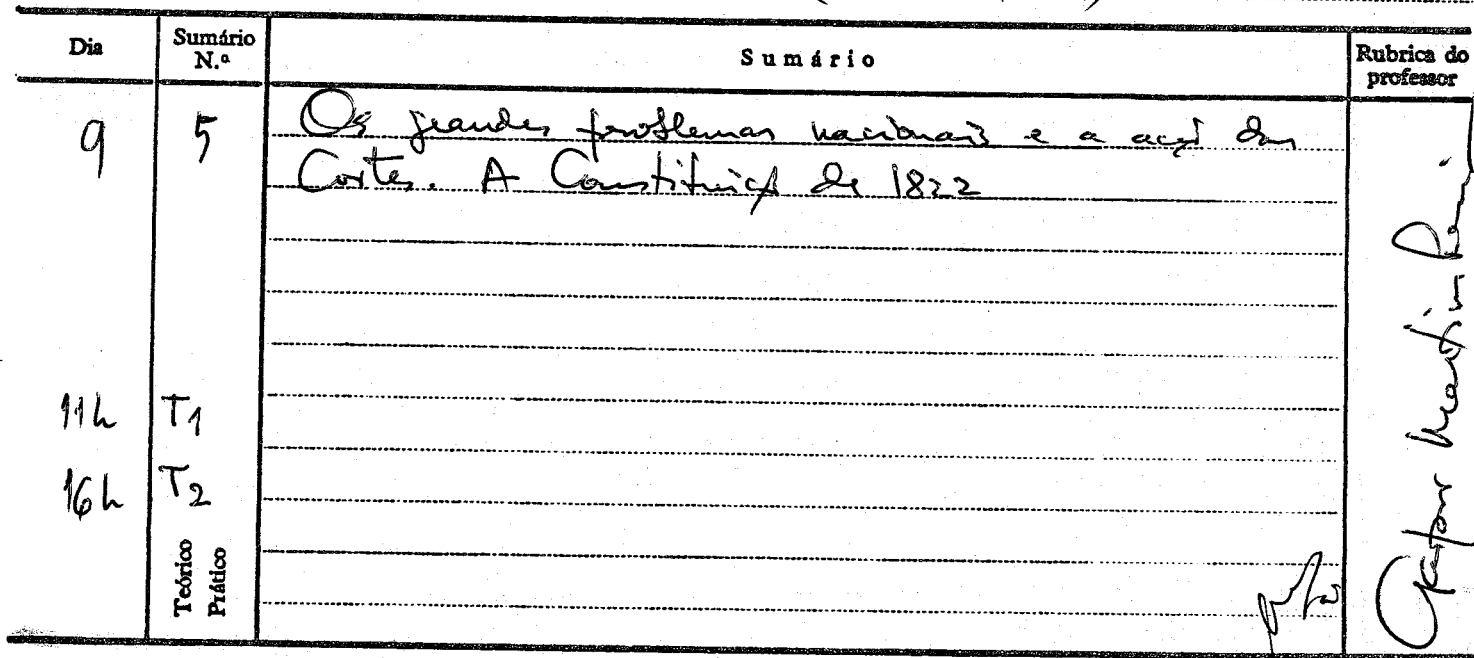 Dia Sumário N.º Sumário Rubrica do professor
9 5 Os grandes problemas nacionais e a acção das
Cortes. A Constituição de 1822
11h T1
16h T2
Teórico
Prático